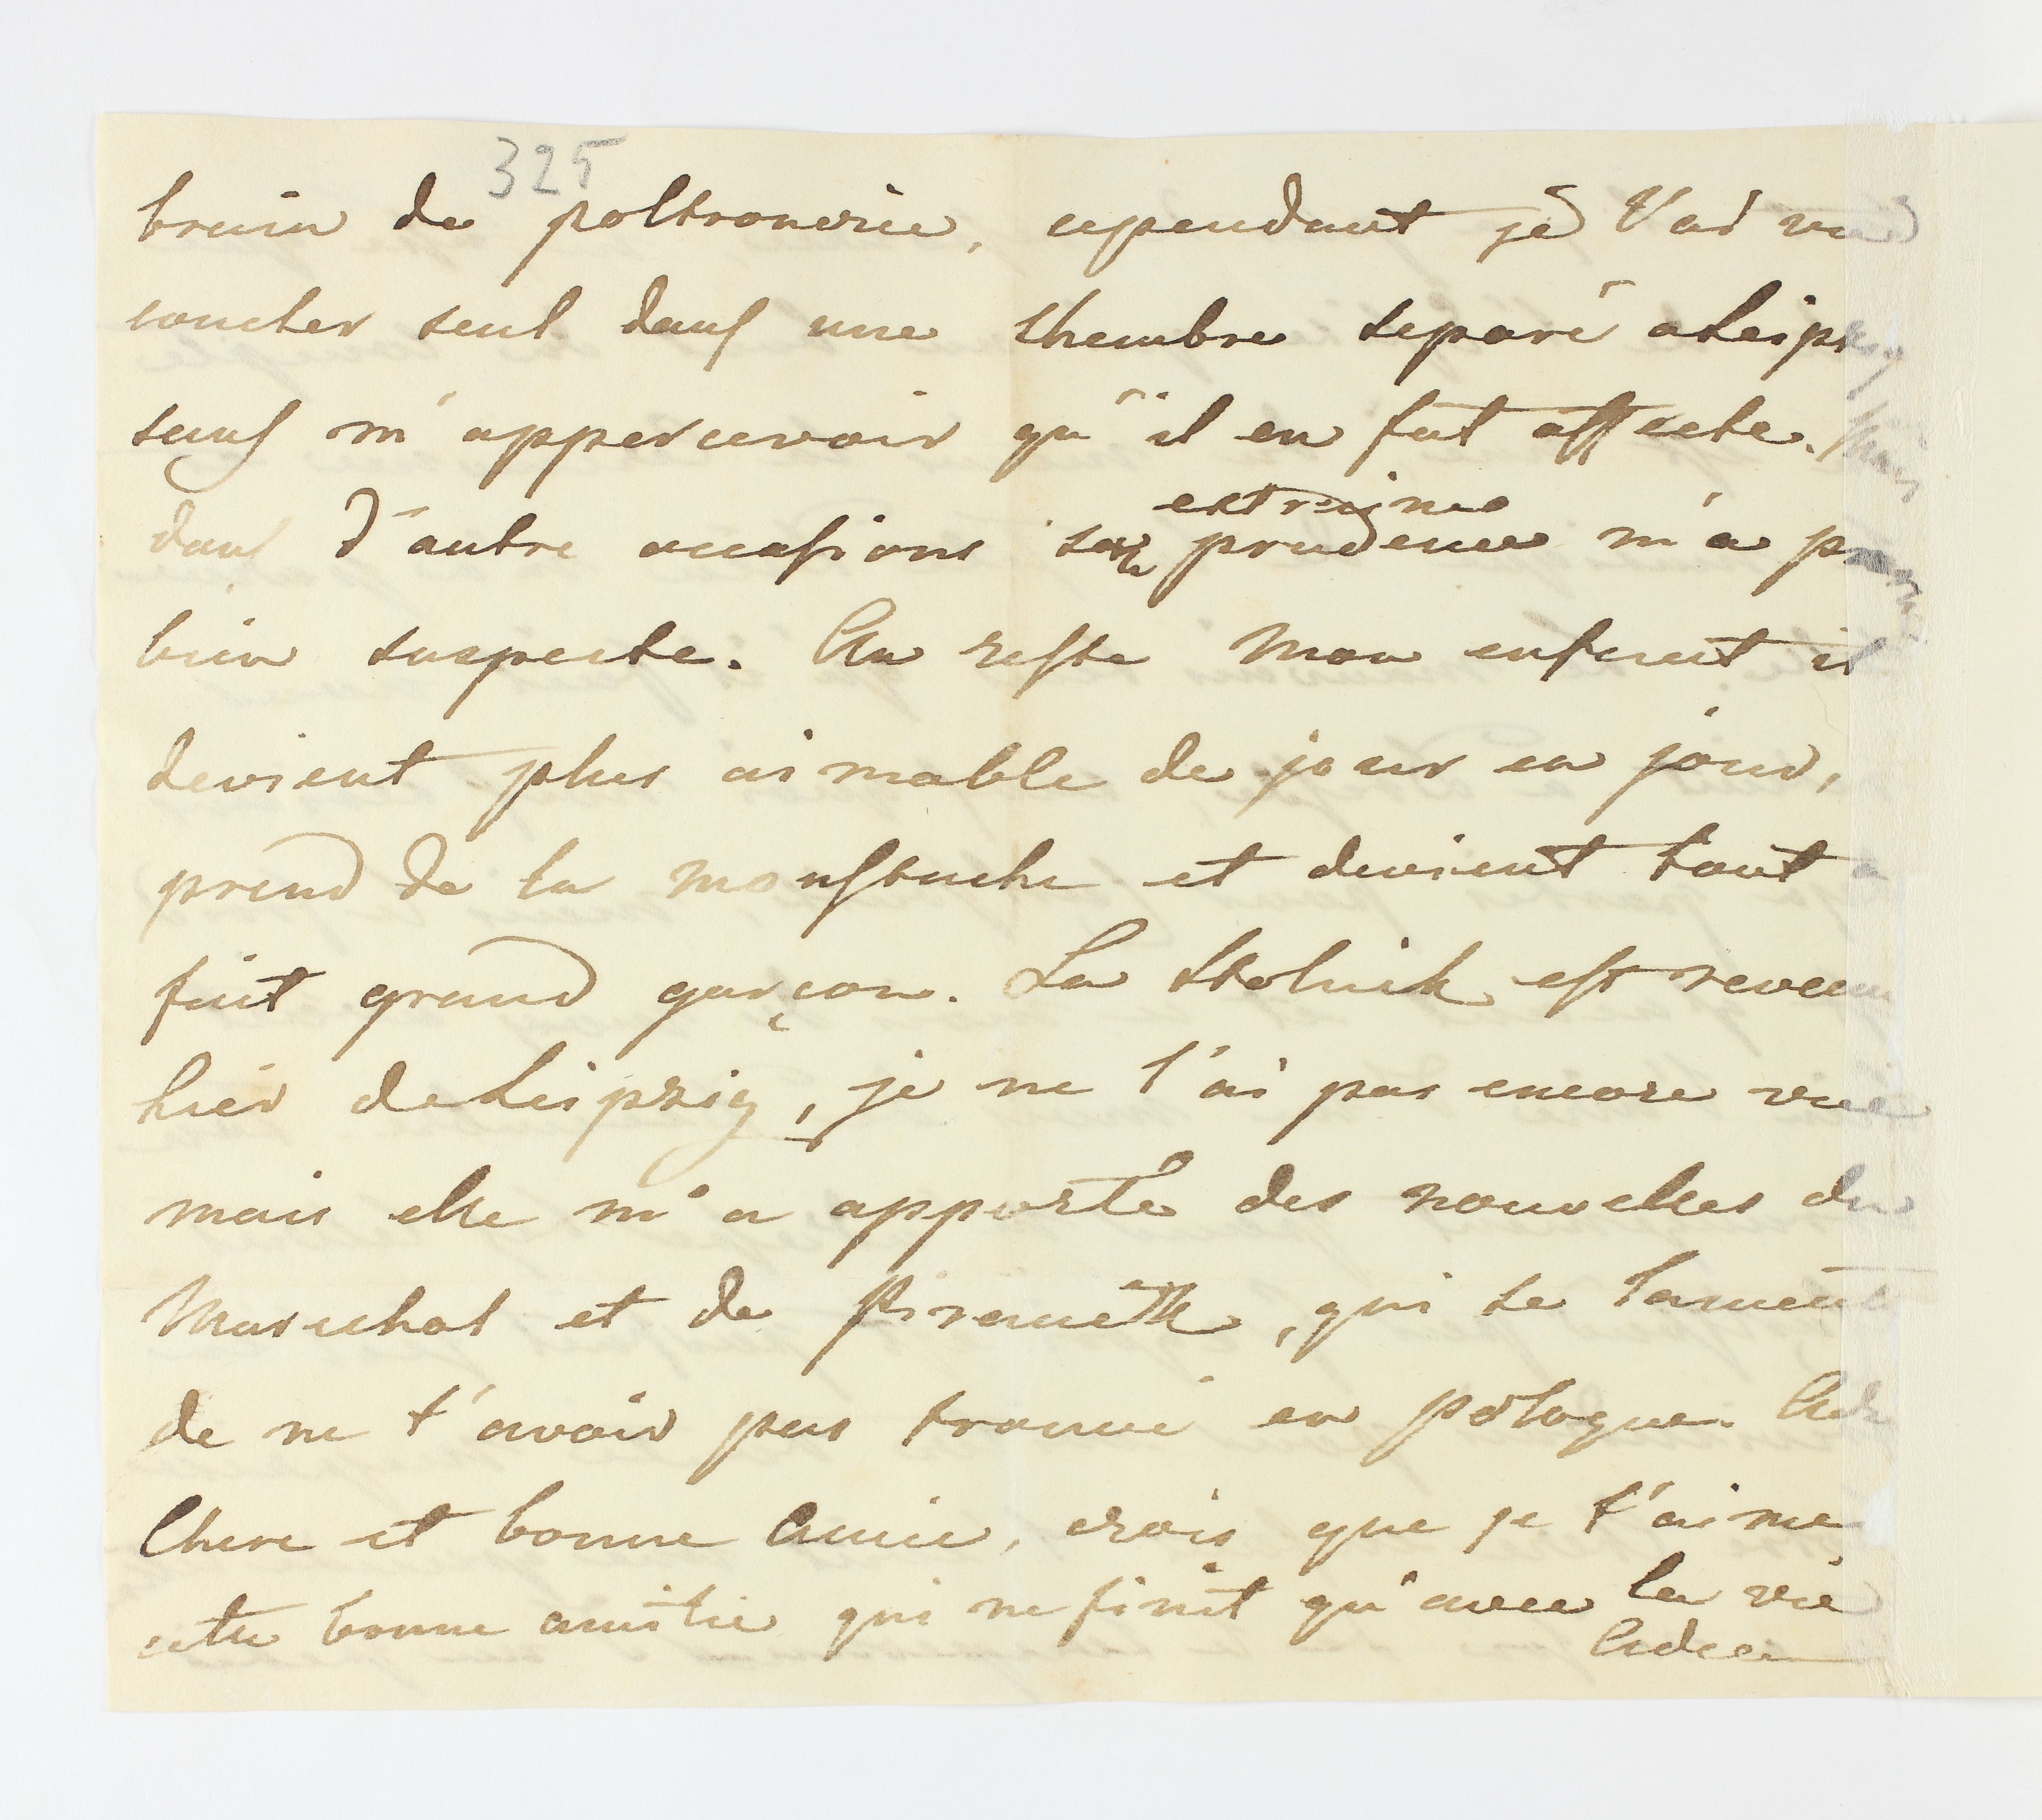 325
brein de poltronerie, cependant je l'ai vu
coucher seul dans une chembre separé a Leipzig
sans m'appercevoir qu'il en fut affecte. Mais
dans d'autre occasions son extreme prudence m'a paru
bien suspecte. Au reste Mon enfent il
devient plus aimable de jour en jour,
prend de la moustache et devient tout a
fait grand garçon. La Stolnik est revenu
hier de Leipzig, je ne l'ai pas encore vue
mais elle m'a apporté des nouvelles du
Marechal et de , qui se lament
de ne t'avoir pas trouvé en pologne.
Chere et bonne Amie, crois que je t'aime
cette bonne amitie qui ne finit qu'avec la vie
Adieu